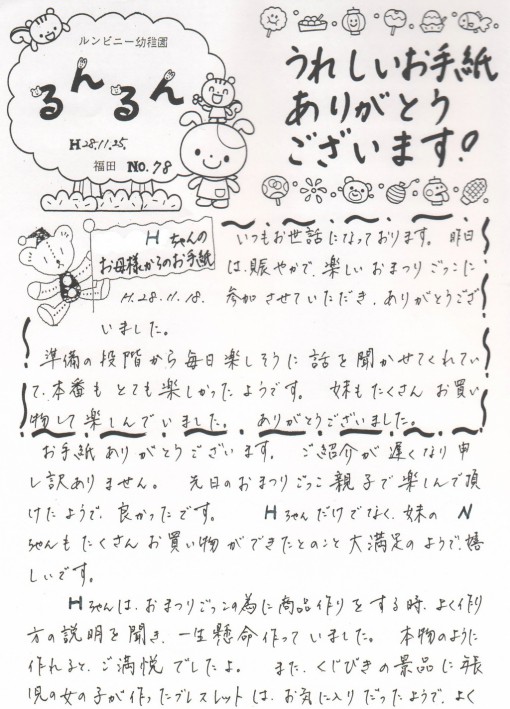 ルンビニー幼稚園
るんるん
H28.11.25
福田 No.78
うれしいお手紙
ありがとう
ございます!
Hちゃんの
お母様からのお手紙
H.28.11.18.
いつもお世話になっております。 昨日
は、賑やかで、楽しい おまつりごっこに
参加 させていただき、ありがとうござ
いました。
準備の段階から毎日楽しそうに 話を聞かせてくれてい
て、本番も とても楽しかったようです。 妹もたくさん お買い
物して楽しんでいました。 ありがとうございました。
お手紙ありがとうございます。 ご紹介が 遅くなり申
し訳ありません。 元日のおまつりごっこ親子で楽しんで頂
けたようで、良かったです。 Hちゃんだけでなく、妹の N
ちゃんも たくさん お買い物ができたとのこと大満足のようで、嬉
しいです。
Hちゃんは、おまつりごっこの為に商品作りをする時、よく作り
方の説明を聞き、一生懸命作っていました。 本物のように
作れると、ご満悦でしたよ。 また、くじびきの景品に年長
児の女の子が作ったブレスレットは、お気に入りだったようで、よく